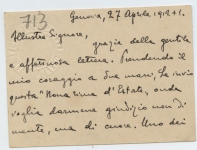 713
Genova, 27 Aprile, 1921.
Illustre Signore,
grazie della gentile
e affettuosa lettera. Prendendo il
mio coraggio a due mani, Le invio
questa "Nona rima d'Estate, onde
voglia darmene giudizio non di
mente, ma di cuore. Uno dei